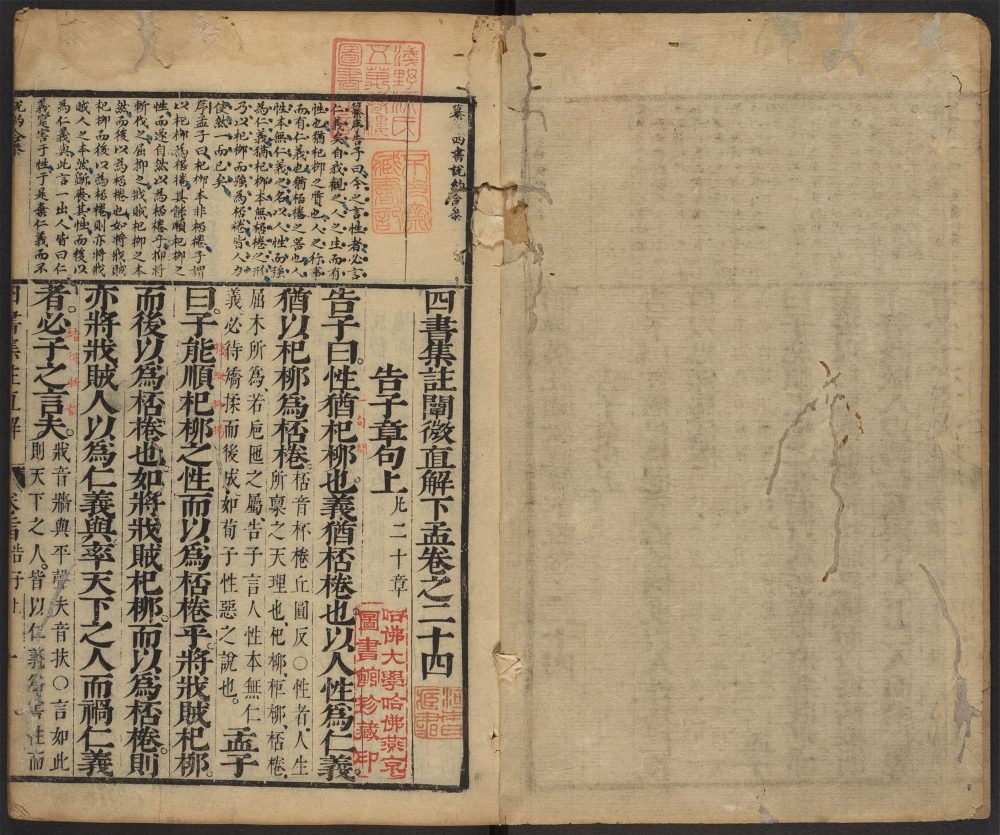 纂 四書說約合叅
纂序告子曰今之言性者必言
仁義矣自我觀之人之生而有
性也猶杞柳之質也人之行事
而有仁義也猶桮棬之器也人
性本無仁義之名以人性而強
為仁義猶杞柳本無桮棬之形
乃以杞柳而強為桮棬皆人力
使然而已矣
序孟子曰杞柳本非桮棬子謂
以杞柳為桮棬其誠順杞柳之
性而遂自然以為桮棬乎抑將
斬伐之屈抑之戕賊杞柳之本
然而後以為桮棬也如將戕賊
杞柳而後以為桮棬則亦將戕
賊人之本然斷喪其性而後以
為仁義與此言一出人皆曰仁
義寔害于性于是棄仁義而不
四書集註闡微直解下孟卷之二十四
告子章句上 凡二十章
告子曰。性猶杞柳也。義猶桮棬也。以人性為仁義。
猶以杞柳為桮棬。桮音杯棬丘圓反○性者人生所稟之天理也杞柳柜柳桮棬
屈木所為若卮匜之屬告子言人性本無仁義必待矯揉而後成如荀子性惡之說也。 孟子
曰。子能順杞柳之性而以為桮棬乎。將戕賊杞柳
而後以為桮棬也。如將戕賊杞柳。而以為桮棬。則
亦將戕賊人以為仁義與。率天下之人而禍仁義
者。必子之言夫。戕音牆與平聲夫音扶○言如此則天下之人皆以仁義為害性而
四書集註直解
哈佛大學哈佛燕京
圖書館珍藏印
淺野源氏
五萬卷樓
圖書